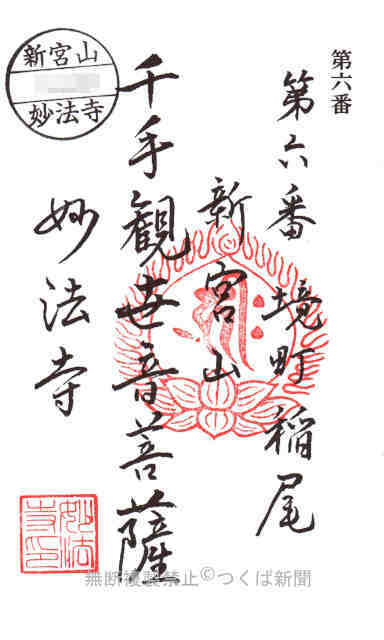 第六番
第六番 境町稲尾
新宮山
千手観世音菩薩
妙法寺
新宮山
妙法寺
妙法寺印
無断複製禁止©つくば新聞